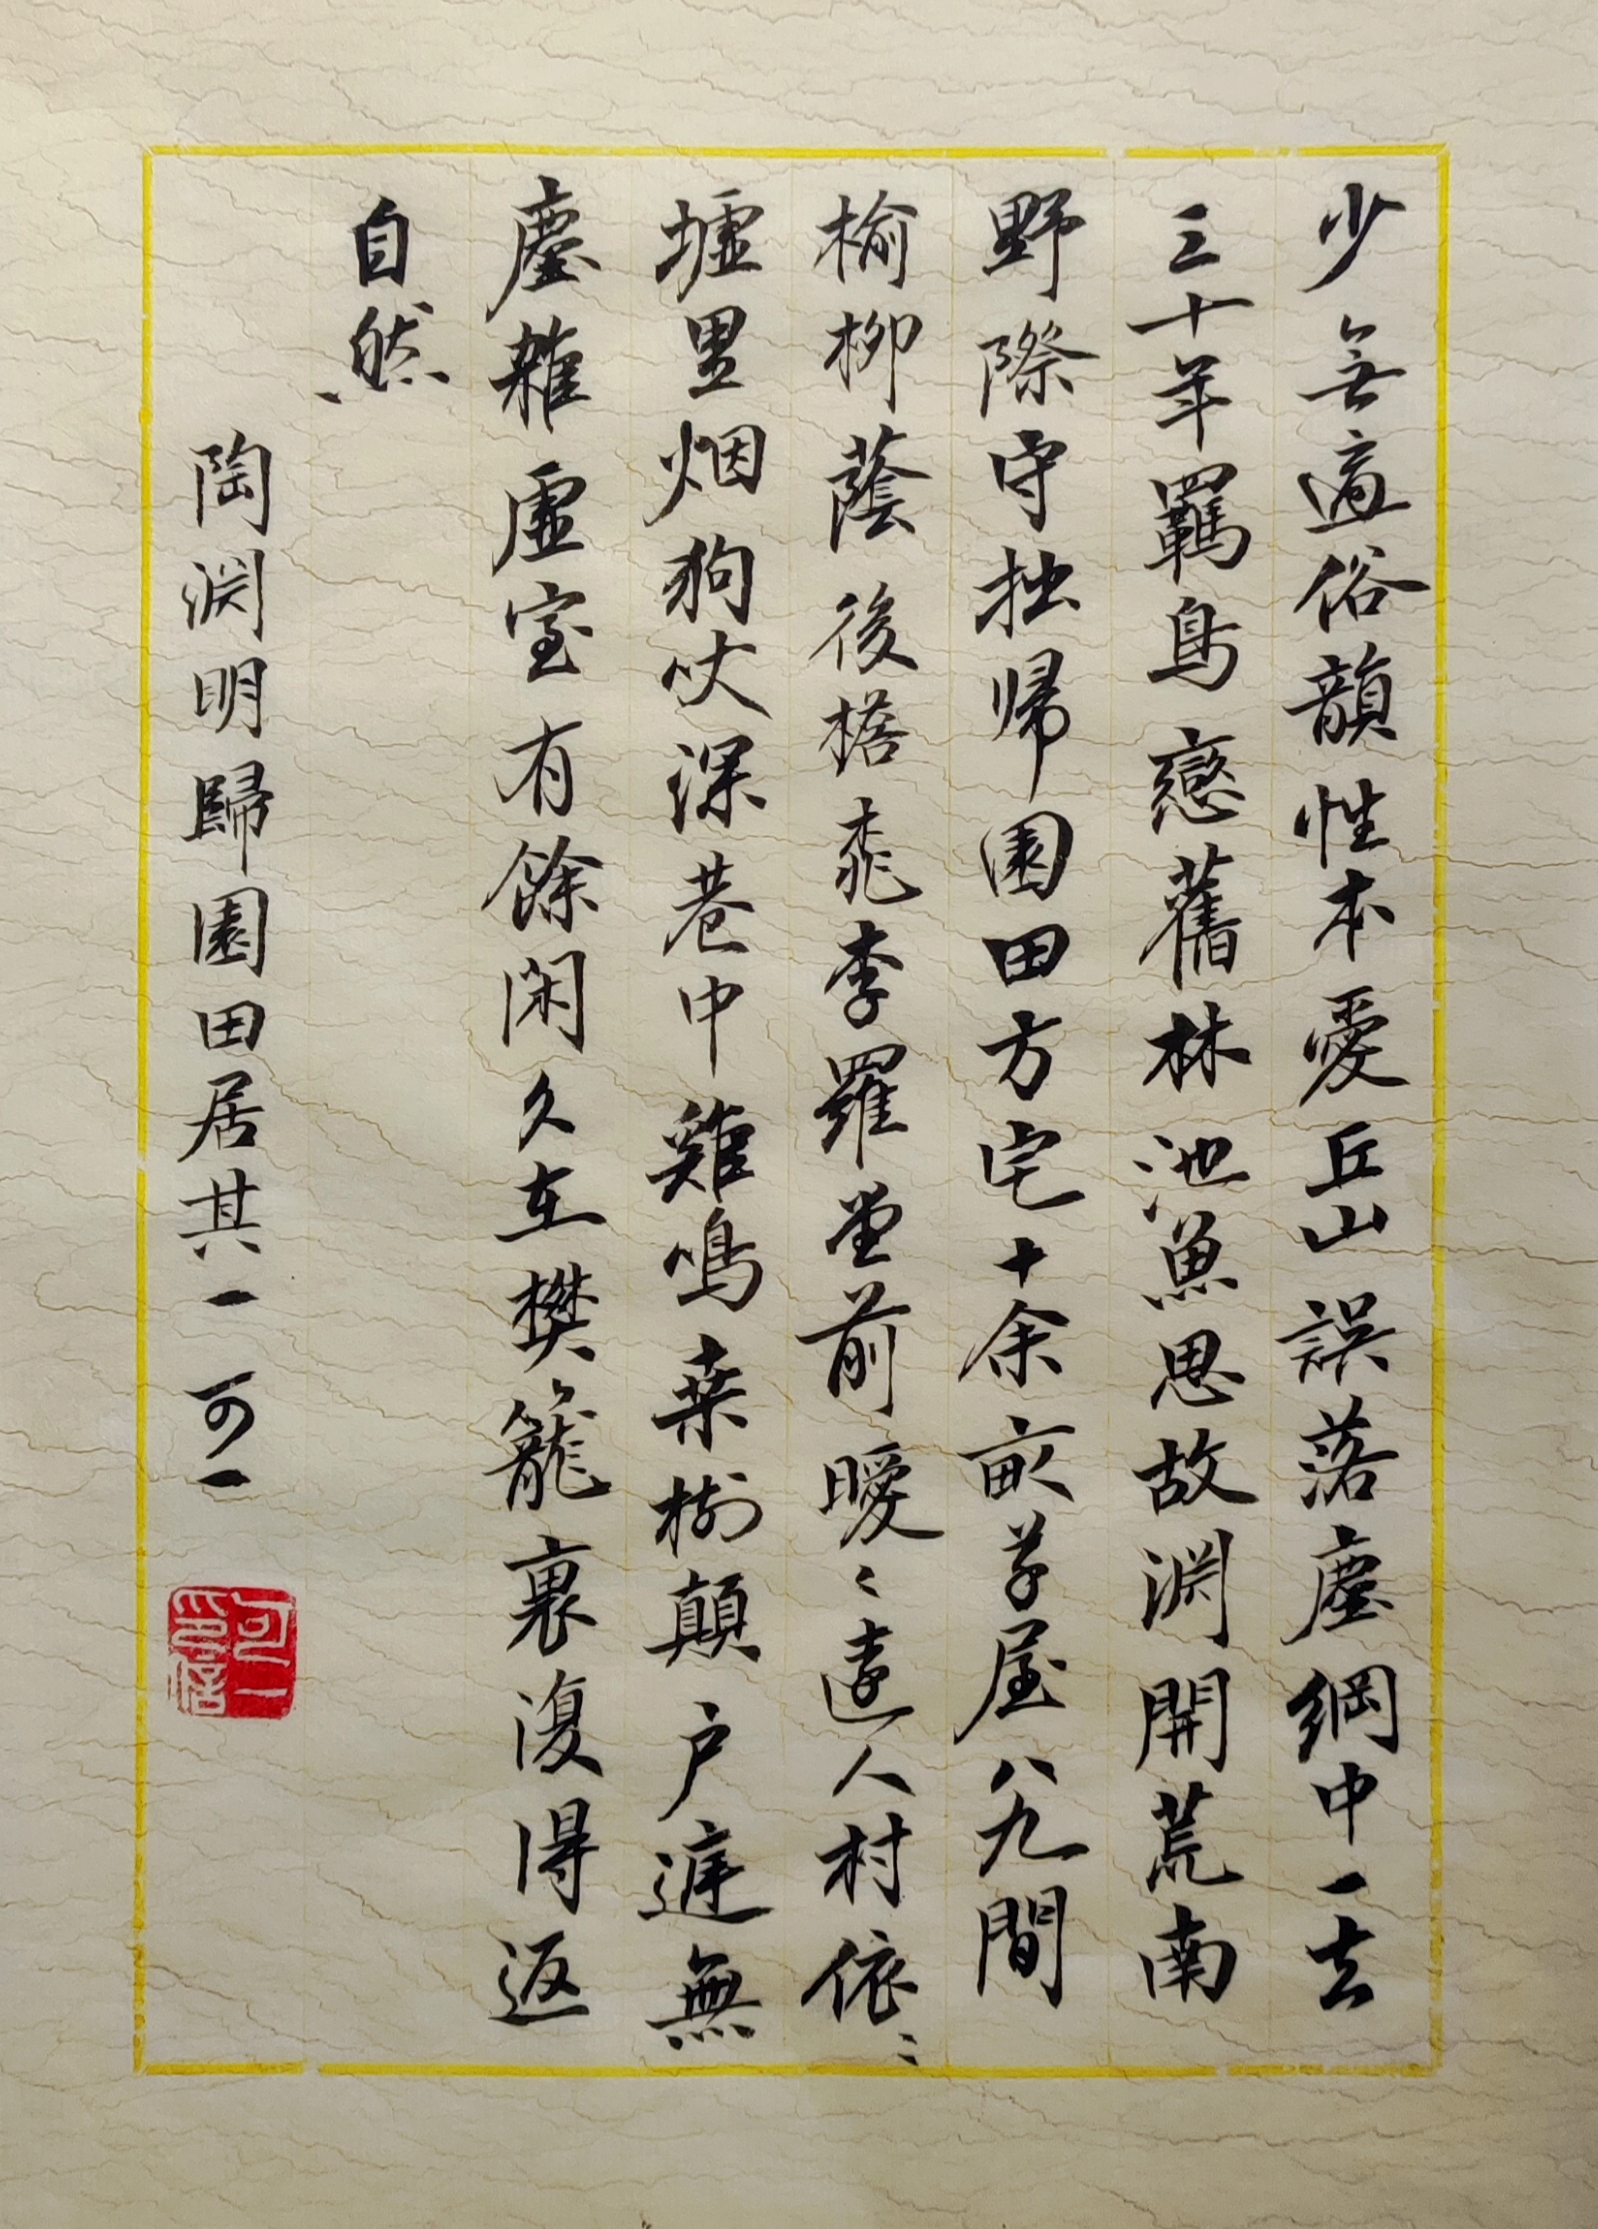 少無適俗韻性本愛丘山誤落塵網中一去
三十年羈鳥戀舊林池魚思故淵開荒南
野際守拙帰園田方宅十余畝草屋八九間
榆柳蔭後檐桃李羅堂前曖〻遠人村依〻
墟里烟狗吠深巷中雞鳴桑樹顛户庭無
塵雜虛室有餘闲久在樊籠裏復得返
自然
陶淵明歸園田居其一 可一
可一
印信